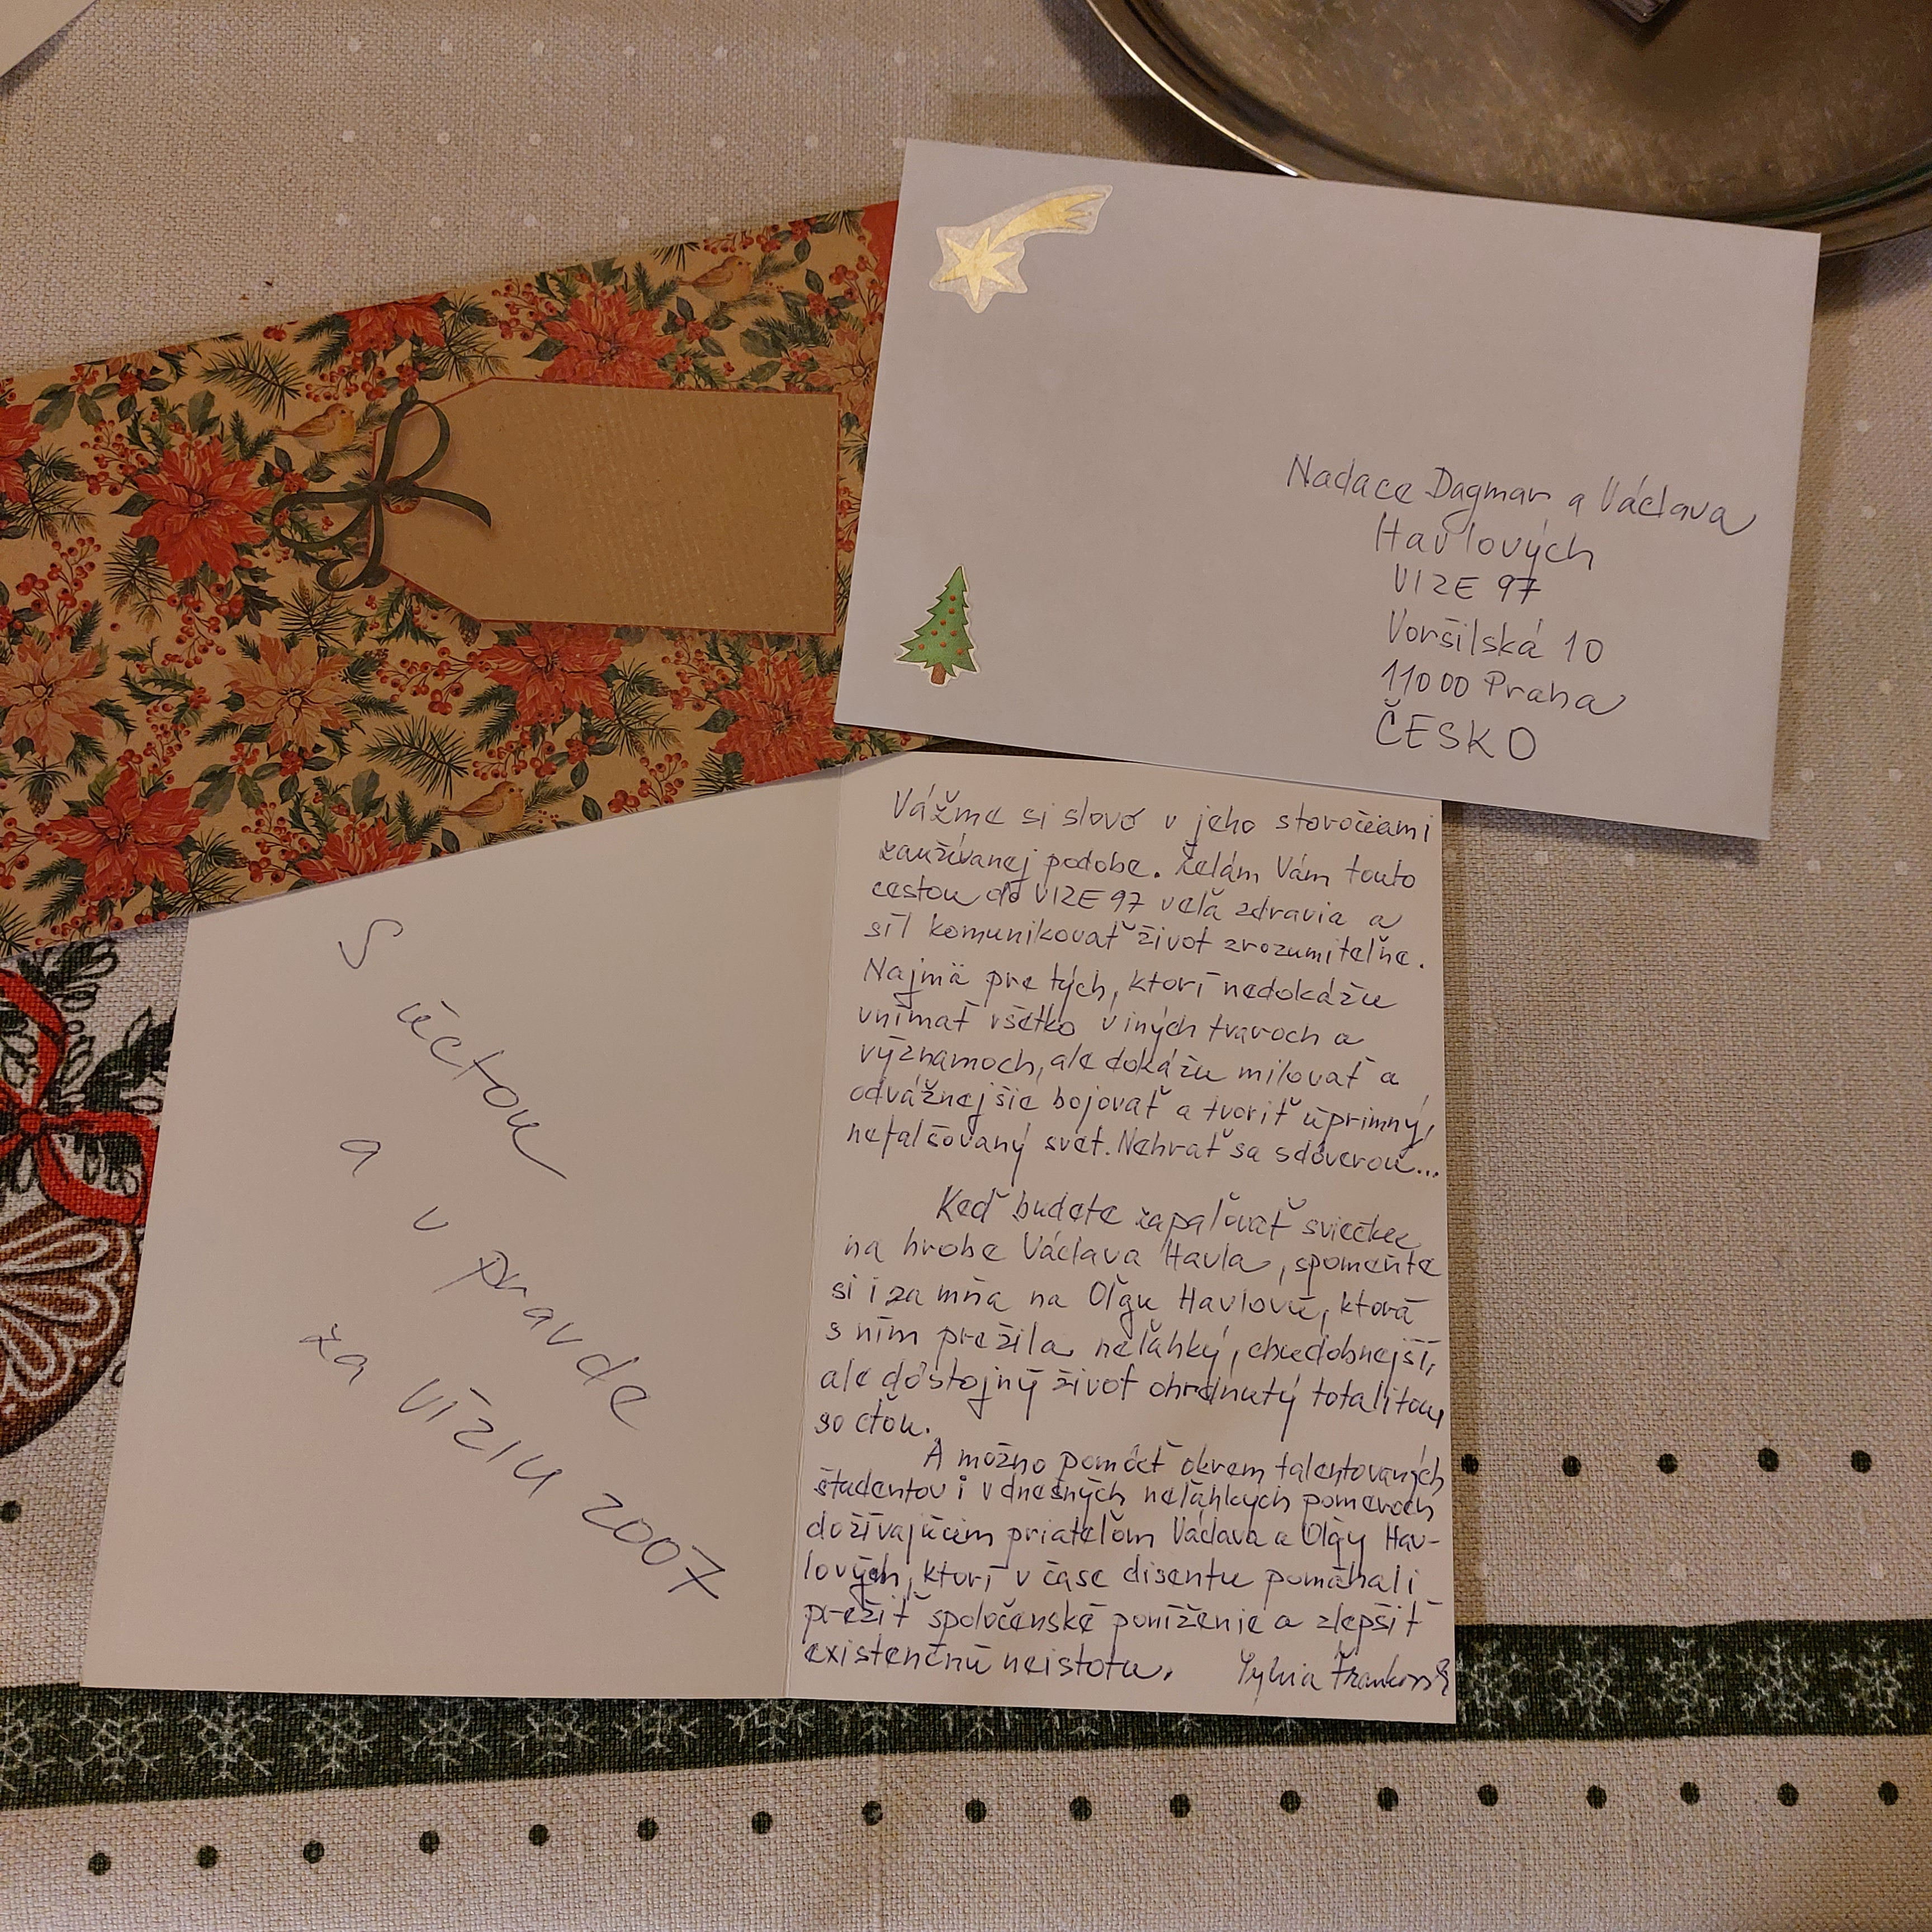 Nadace Dagmar a Václava
Havlových
VIZE 97
Voršilská 10
11000 Praha
ČESKO
S
úctou
a
v
pravde
za víziu 2007
Vážme si slovo v jeho storočiami
zaužívanej podobe. Želám Vám touto
cestou do VIZE 97 veľa zdravia a
síl komunikovať život zrozumiteľne.
Najmä pre tých, ktorí nedokážu
vnímať všetko v iných tvaroch a
významoch, ale dokážu milovať a
odvážnejšie bojovať a tvoriť úprimný,
nefalšovaný svet. Nehrať sa s dôverou...
Keď budete zapaľovať sviečku
na hrobe Václava Havla, spomeňte
si i za mňa na Oľgu Havlovú, ktorá
s ním prežila neľahký, chudobnejší,
ale dôstojný život ohrdnutý totalitou,
so cťou.
A možno pomôcť okrem talentovaných
študentov i v dnešných neľahkých pomeroch
dožívajúcim priateľom Václava a Oľgy Hav-
lových, ktorí v čase disentu pomáhali
prežiť spoločenské poníženie a zlepšiť
existenčnú neistotu. Sylvia